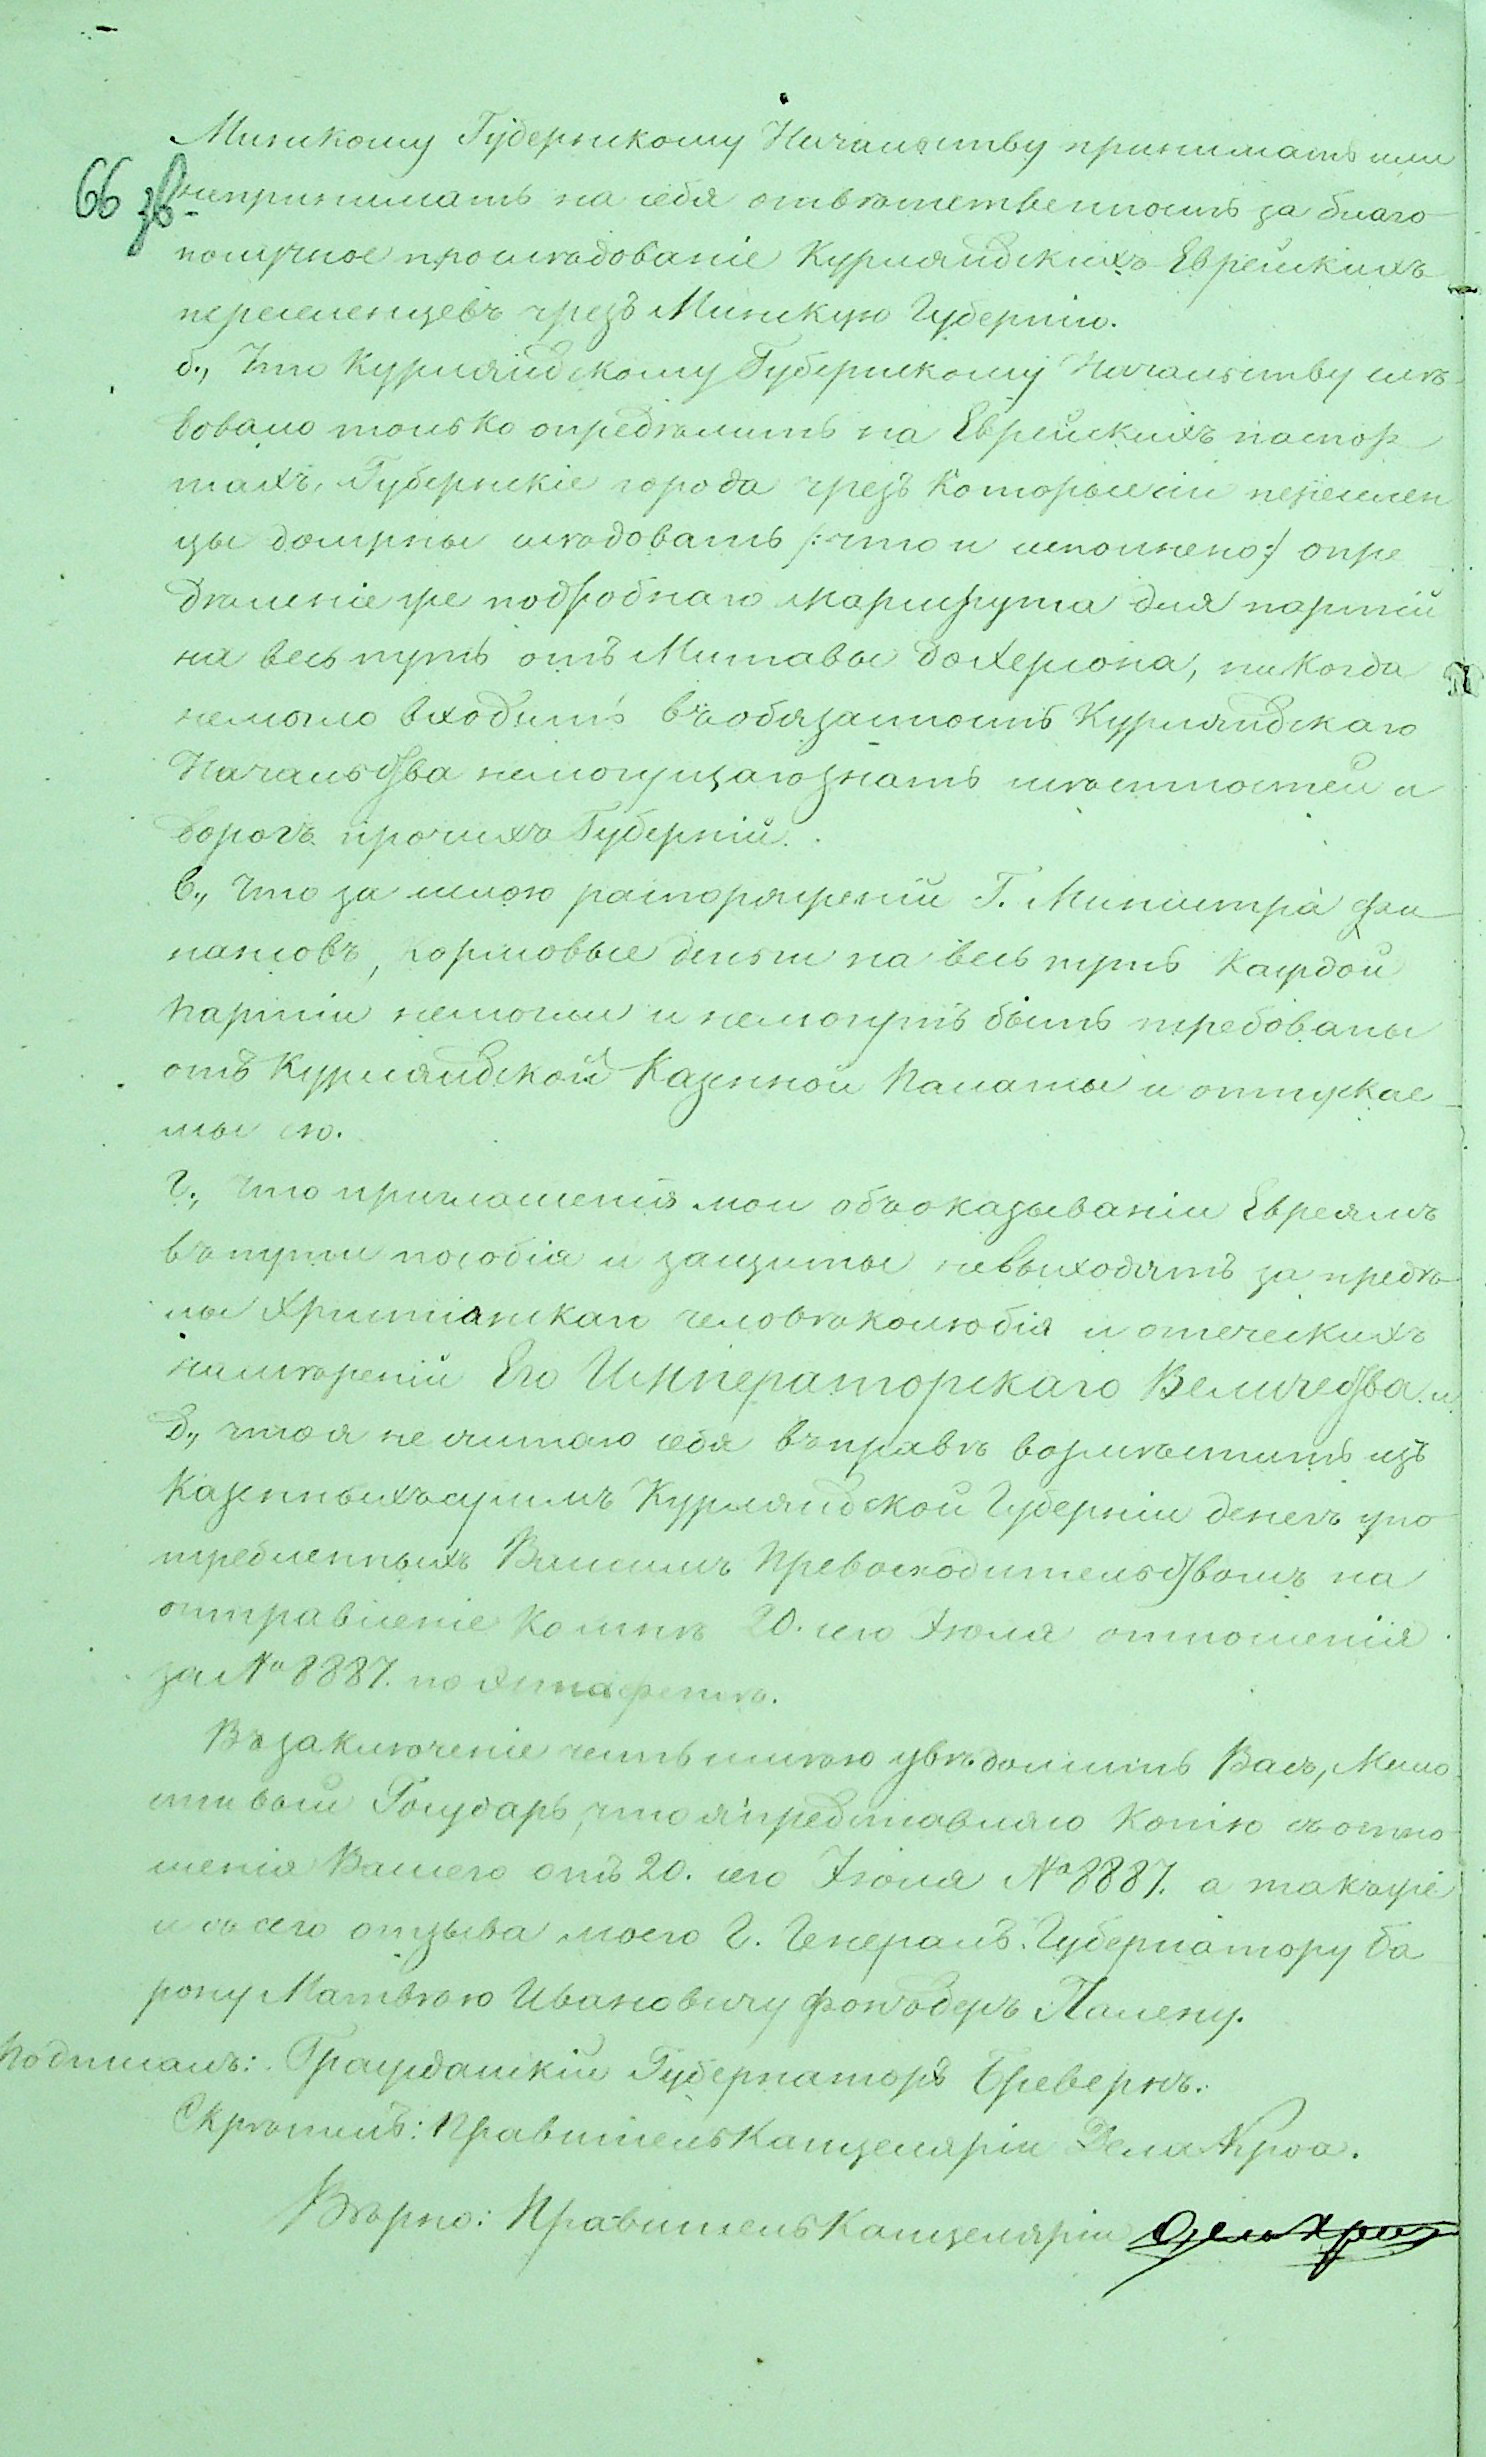 Минскому Губернскому Начальству принимать или
66 об
непринимать на себя ответственность за благо
получное прослѣдованіе Курляндскихъ Еврейскихъ
переселенцевъ чрезъ Минскую Губернію.
б., Что Курляндскому Губернскому Начальству слѣ
довало только опредѣлить на Еврейскихъ паспор
тахъ, Губернскіе города чрезъ которые сіи переселен
цы должны слѣдовать /:что и исполнено:/ опре
дѣленіе же подробнаго маршрута для партій
на весь путь отъ Митавы до Херсона, никогда
немогло входить въ обязанность Курляндскаго
Начальства немогущаго знать мѣстностей и
дорогъ прочихъ Губерній.
в., Что за силою распоряженій Г. Министра Фи
нансовъ, кормовые деньги на весь путь каждой
партіи немогли и немогутъ быть требованы
отъ Курляндской Казенной Палаты и отпускае
мы ею.
г., Что приглашенія мои объ оказываніи Евреямъ
въ пути пособія и защиты невыходятъ за предѣ
лы Христіанскаго человѣколюбія и отеческихъ
намѣреній Его Императорскаго Величества и
д., что я не считаю себя въ правѣ возмѣстить изъ
Казенныхъ суммъ Курляндской Губерніи денегъ упо
требленныхъ Вашимъ Превосходительствомъ на
отправленіе ко мнѣ 20. сего Іюля отношенія
за № 8887. по эстафетѣ.
Въ заключеніе честь имѣю увѣдомить Васъ, Мило
стивый Государь, что я представляю копію съ отно
шенія Вашего отъ 20. сего Іюля № 8887. а также
и съ сего отзыва моего Г. Генералъ-Губернатору Ба
рону Матвѣю Ивановичу фонъ деръ Палену.
Подписалъ: Гражданскій Губернаторъ Бревернъ.
Скрѣпилъ: Правитель Канцеляріи Дела Кроа.
Вѣрно: Правитель Канцеляріи Дела Кроа